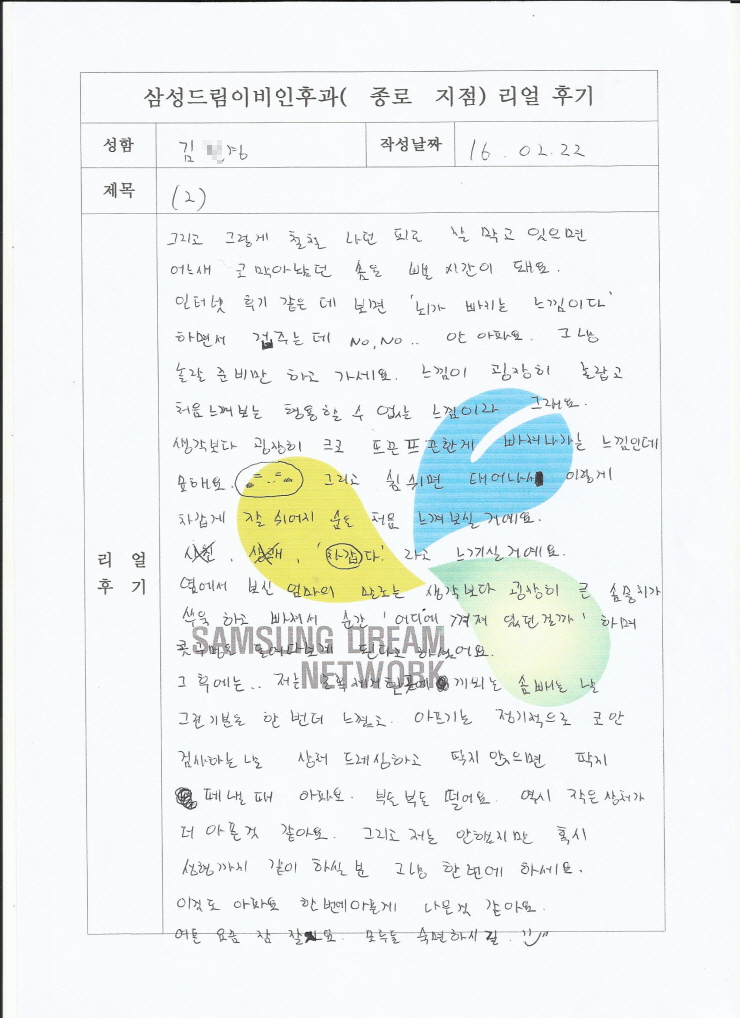 삼성드림이비인후과( 종로 지점) 리얼 후기
성함 김 경 작성날짜 16. 02. 22
제목 (2)
리얼 후기
그리고 그렇게 철철 나던 피로 잘 막고 있으면
어느새 코 막아놨던 솜을 뺄 시간이 돼요.
인터넷 후기 같은 데 보면 '뇌가 빠지는 느낌이다'
하면서 겁주는데 NO, NO.. 안 아파요. 그냥
놀랄 준비만 하고 가세요. 느낌이 굉장히 놀랍고
처음 느껴보는 형용할 수 없는 느낌이라 그래요.
생각보다 굉장히 크고 뜨끈뜨끈한게 빠져나가는 느낌인데
묘해요. 그리고 숨쉬면 태어나서 이렇게
차갑게 잘 쉬어지 숨은 처음 느껴보실 거예요.
시원, 상쾌, '차갑다' 라고 느끼실거예요.
옆에서 보신 엄마의 말로는 생각보다 굉장히 큰 솜뭉치가
쑤욱 하고 빠져서 순간 '어디에 껴져 있던걸까' 하며
콧구멍을 들여다보게 된다고 하셨어요.
그 후에는.. 저는 한곳에 끼되는 솜 빼는 날
그런기분을 한 번더 느꼈고. 아프기는 정기적으로 코안
검사하는 날 상처 드레싱하고 딱지 앉으면 딱지
떼낼 때 아파요. 부들부들 떨어요. 역시 작은상처가
더 아픈것 같아요. 그리고 저는 안했지만 혹시
성형까지 같이 하실 분 그냥 한번에 하세요.
이것도 아파요 한번에아픈게 나은것 같아요.
여튼 요즘 잠 잘 요. 모두들 숙면하시길.
SAMSUNG DREAM
NETWORK